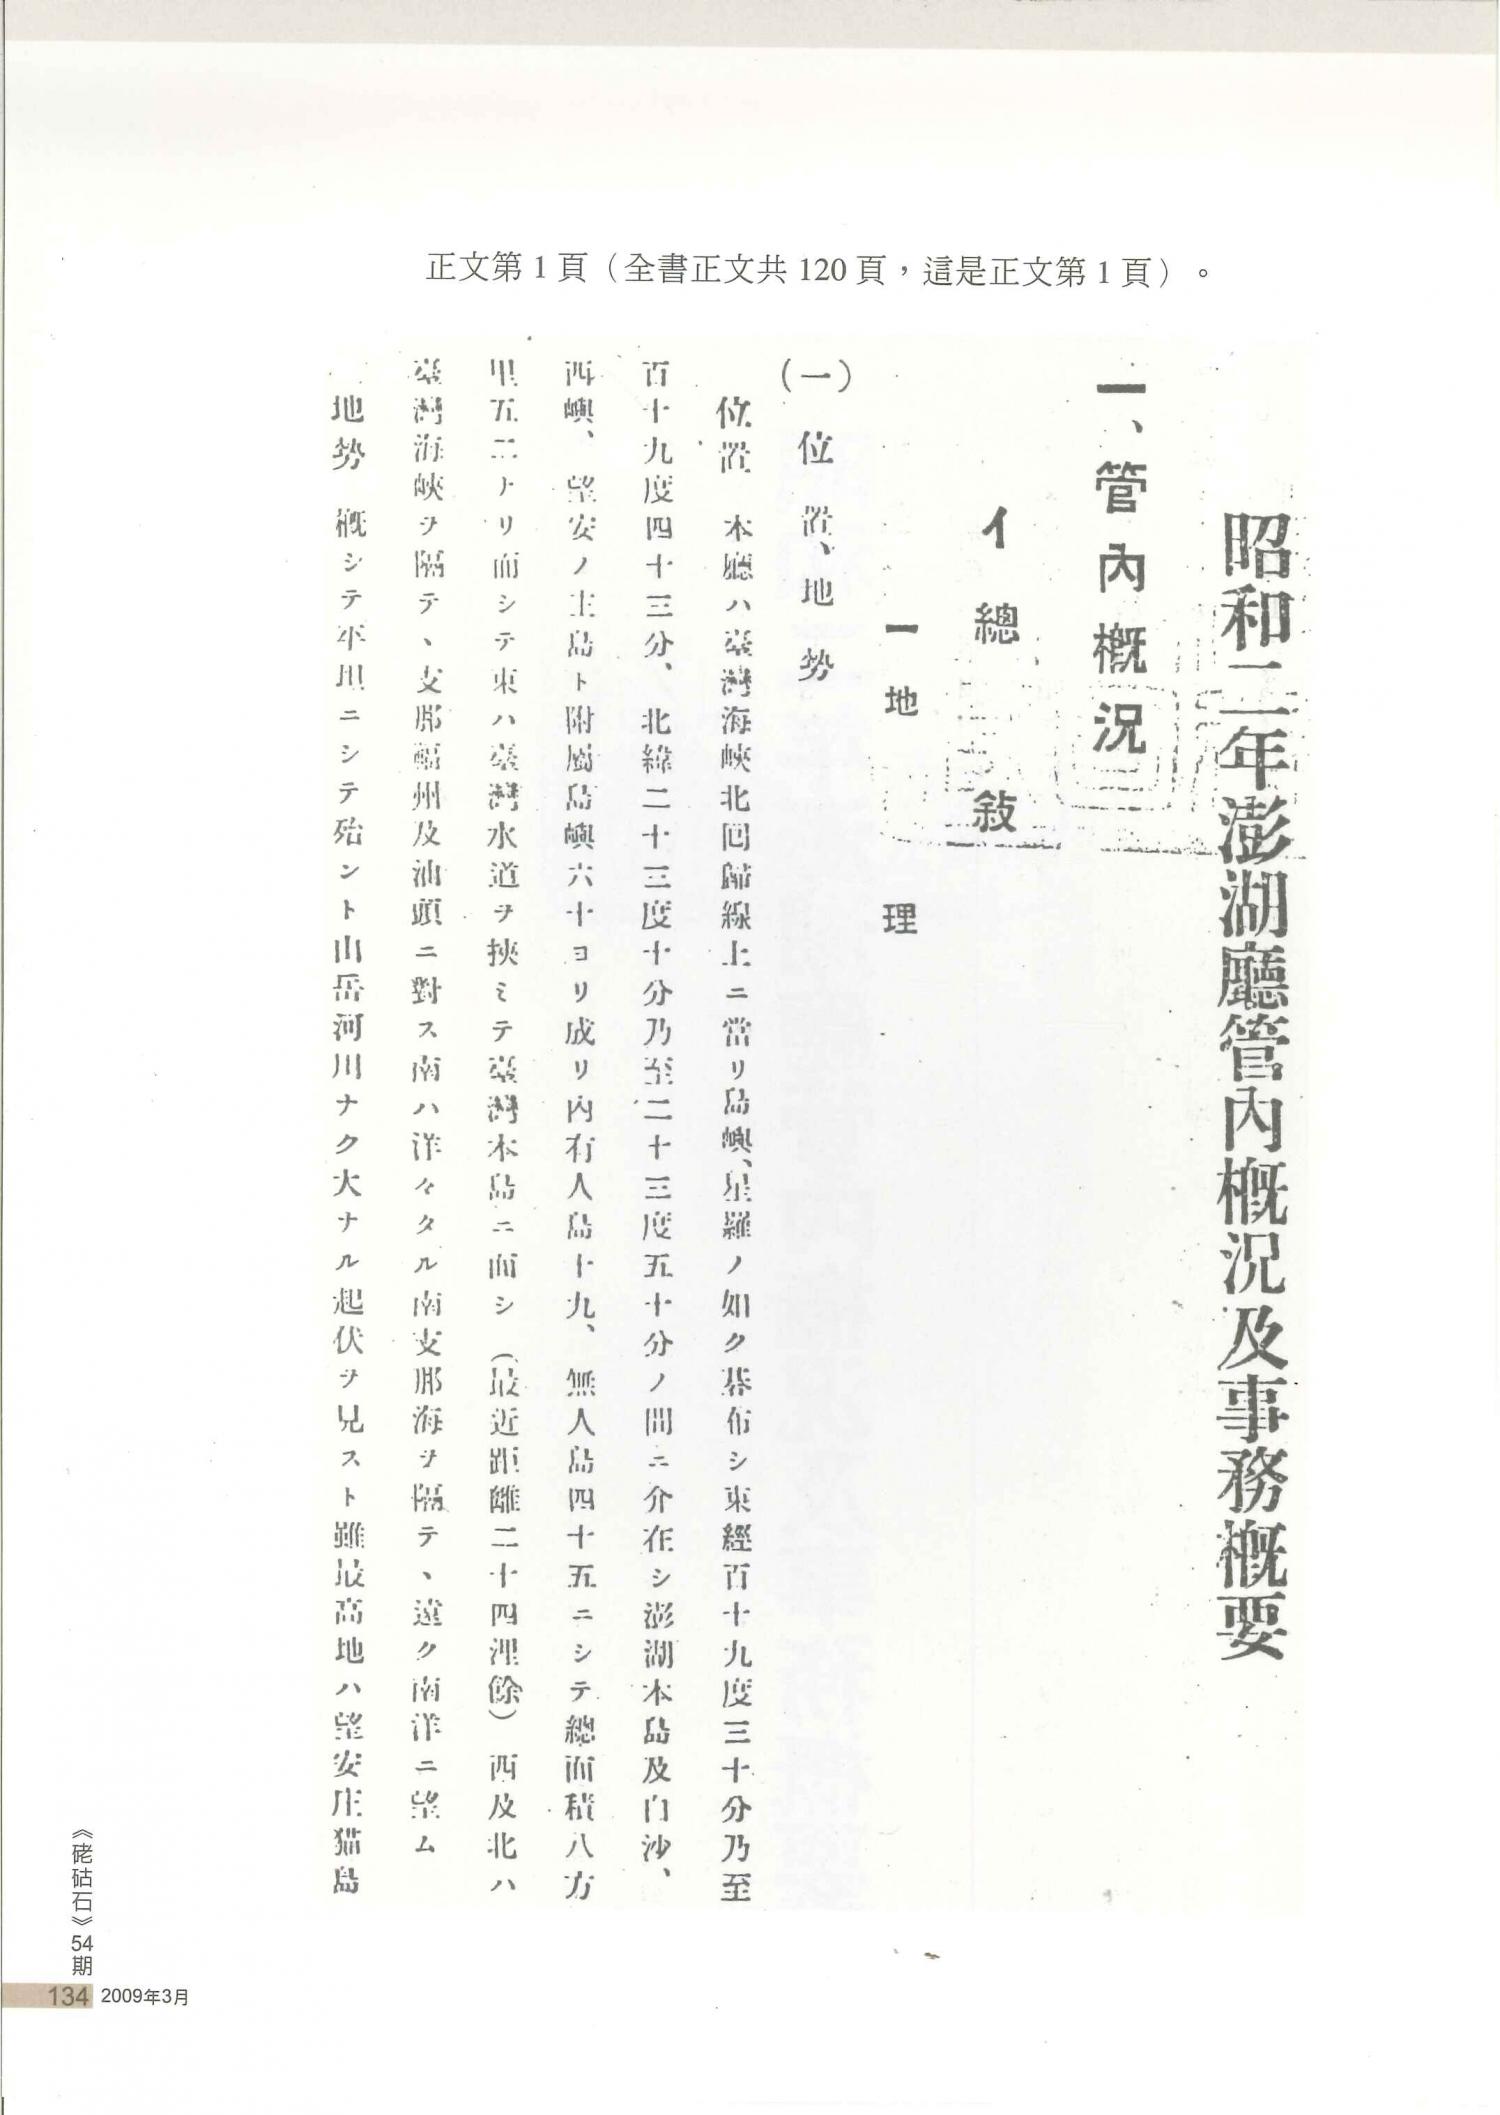 正文第1頁（全書正文共120頁，這是正文第1頁）。
昭和二年澎湖廳管內概況及事務概要
一、管內概況
イ總敍
一地理
(一)位置、地勢
位置　本廳ハ臺灣海峽北回歸線上ニ當リ島嶼、星羅ノ如ク碁布シ東經百十九度三十分乃至
百十九度四十三分、北緯二十三度十分乃至二十三度五十分ノ間ニ介在シ澎湖本島及白沙、
西嶼、望安ノ主島ト附屬島嶼六十ヨリ成リ內有人島十九、無人島四十五ニシテ總面積八方
里五二ナリ而シテ東ハ臺灣水道ヲ挾ミテ臺灣本島ニ面シ(最近距離二十四浬餘)西及北ハ
臺灣海峽ヲ隔テ、支那福州及汕頭ニ對ス南ハ洋々タル南支那海ヲ隔テ、遠ク南洋ニ望ム
地勢　概シテ平坦ニシテ殆ント山岳河川ナク大ナル起伏ヲ見スト雖最高地ハ望安庄猫島
《硓𥑮石》54期
134 2009年3月